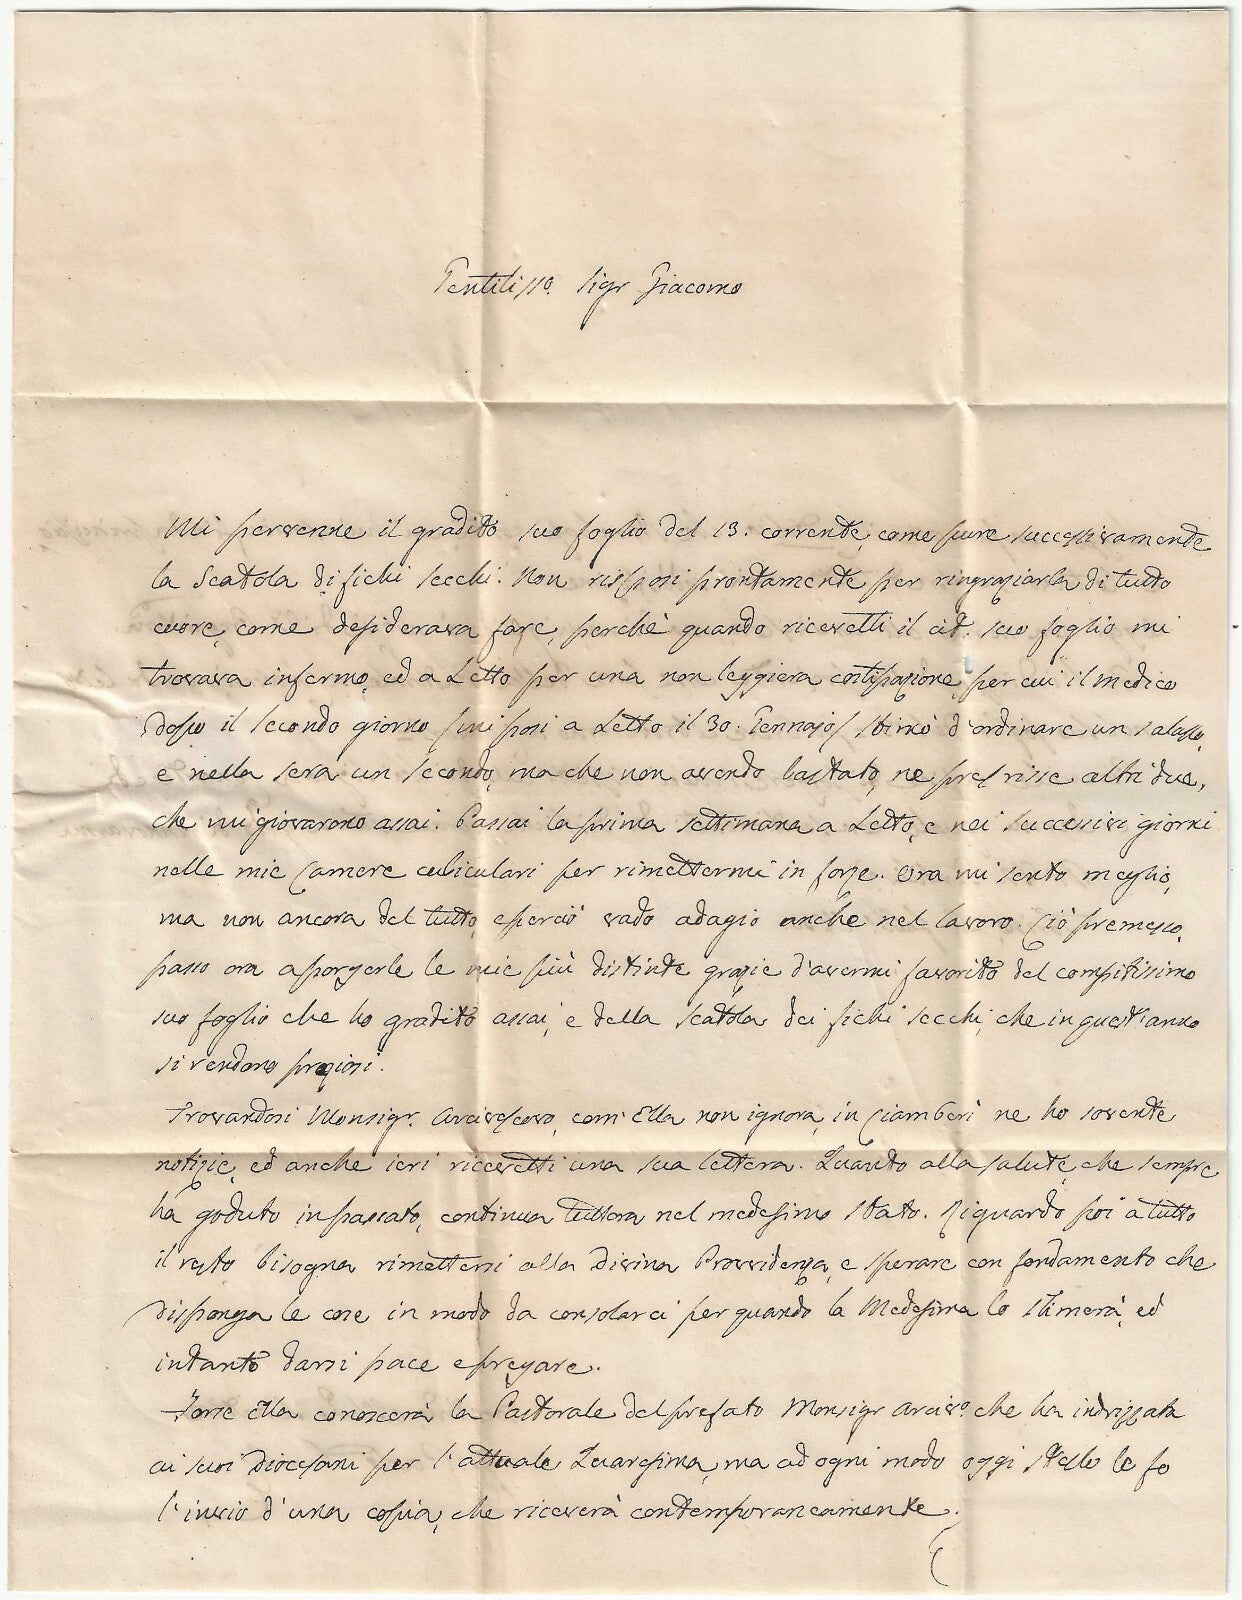 Gentiliss.o Sigr Giacomo
Mi pervenne il gradito suo foglio del 13. corrente, come pure successivamente
la Scatola di fichi secchi. Non risposi prontamente per ringraziarla di tutto
cuore, come desiderava fare, perchè quando ricevetti il cit. suo foglio mi
trovava infermo, ed a Letto per una non leggiera costipazione, per cui il medico
dopo il secondo giorno (mi posi a Letto il 30. Gennajo) stimò d'ordinare un salasso,
e nella sera un secondo, ma che non avendo bastato, ne prescrisse altri due,
che mi giovarono assai. Passai la prima settimana a Letto, e nei successivi giorni
nelle mie Camere cubiculari per rimettermi in forze. Ora mi sento meglio,
ma non ancora del tutto, e perciò vado adagio anche nel lavoro. Ciò premesso,
passo ora a porgerle le mie più distinte grazie d'avermi favorito del compitissimo
suo foglio che ho gradito assai, e della scatola dei fichi secchi, che in quest'anno
si rendono preziosi.
Trovandosi Monsigr. Arcivescovo, com'Ella non ignora, in Ciamberì ne ho sovente
notizie, ed anche ieri ricevetti una sua lettera. Quanto alla salute, che sempre
ha goduto in passato, continua tuttora nel medesimo stato. Riguardo poi a tutto
il resto bisogna rimettersi alla Divina Provvidenza, e sperare con fondamento che
disponga le cose in modo da consolarci per quando la Medesima lo stimerà, ed
intanto darsi pace e pregare.
Forse Ella conoscerà la Pastorale del prefato Monsigr Arciv.o che ha indrizzata
ai suoi Diocesani per l'attuale Quaresima, ma ad ogni modo oggi stesso le fo
l'invio d'una copia, che riceverà contemporaneamente.